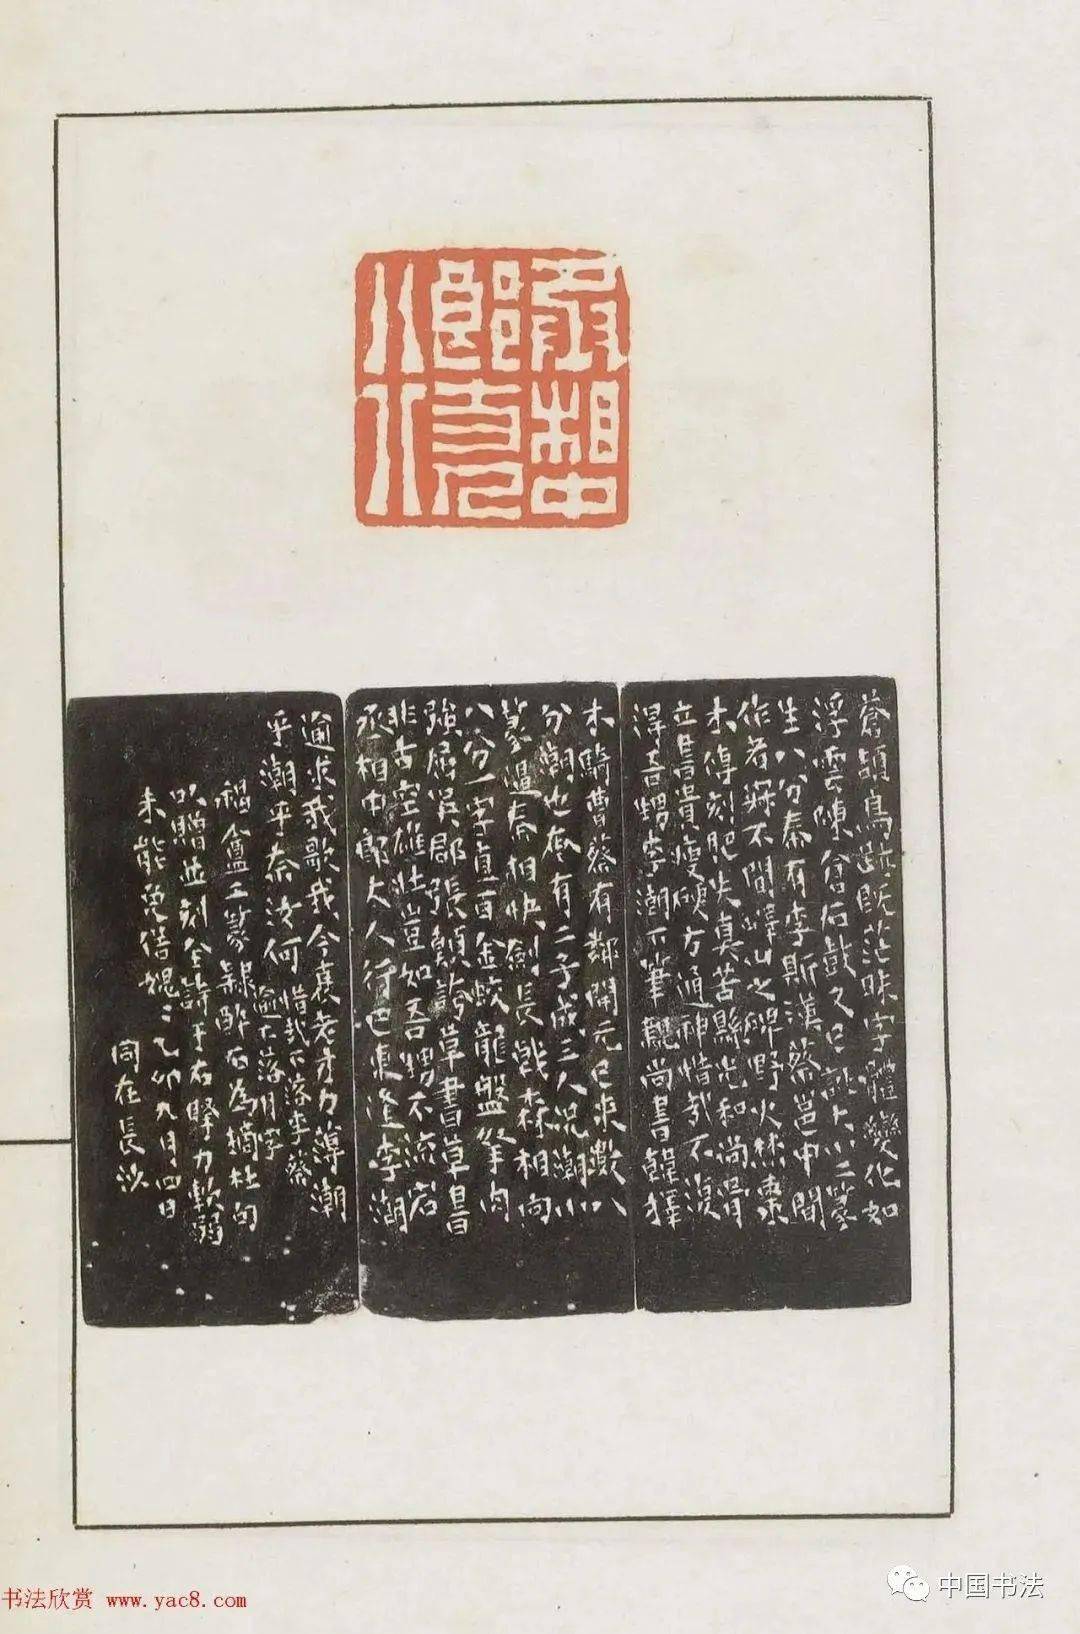 丞相中
郎丈人
行
蒼頡鳥跡既茫昧字體變化如
浮雲陳倉石鼓又已訛大小二篆
生八分秦有李斯漢蔡邕中間
作者寂不聞嶧山之碑野火焚棗
木傳刻肥失真苦縣光和尚骨
立書貴瘦硬方通神惜哉不復
得吾甥李潮下筆親尚書韓擇
木騎曹蔡有鄰開元已來數八
分潮也奄有二子成三人況潮小
篆逼秦相快劍長戟森相向
八分一字直百金蛟龍盤拏肉
強屈吳郡張顛誇草書草書
非古空雄壯豈如吾甥不流宕
丞相中郎丈人行巴東逢李潮
逾求我歌我今衰老才力薄潮
乎潮乎奈汝何 惜哉下落李蔡
逾下落月字
盦工篆隸 為摘杜句
以贈並刻全詩于右 力軟弱
未能免俗媿二乙卯九月四日
同在長沙
书法欣赏 www.yac8.com
中国书法